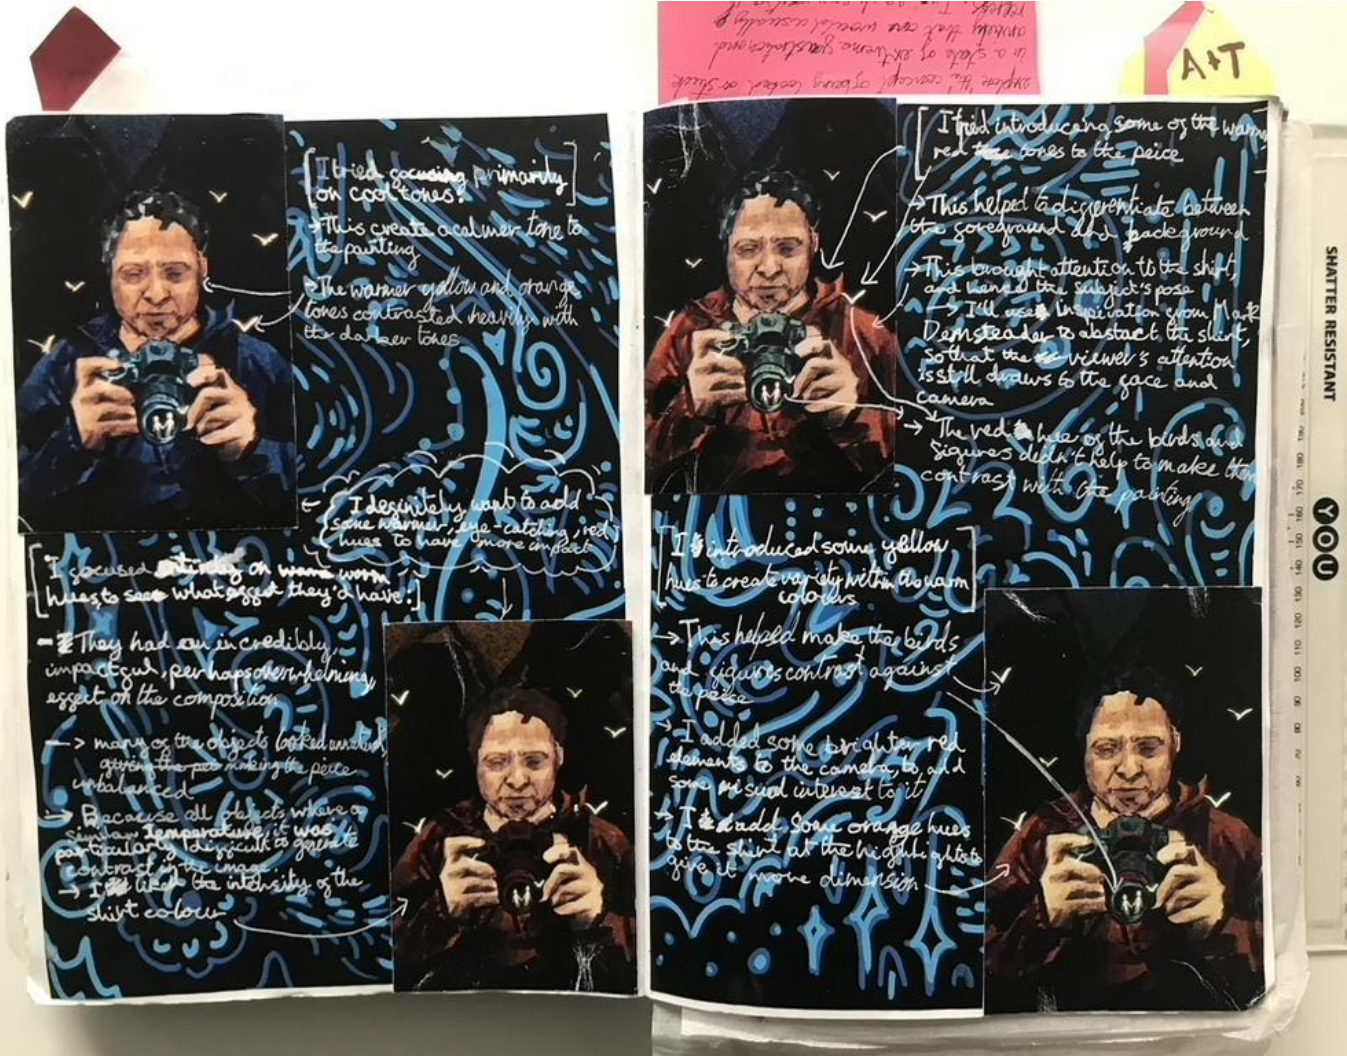 explore "the concept of being locked or stuck
in a state of extreme frustration and
anxiety that one would usually
A+T
[I tried focusing primarily
on cool tones:]
→This create a calmer tone to
the painting
→The warmer yellow and orange
tones contrasted heavily with
the darker tones
I definitely want to add
some warmer, eye-catching, red
hues to have more impact
[I focused entirely on warm
hues, to see what effect they'd have:]
They had an incredibly,
impactful, perhaps overwhelming,
effect on the composition
→ many of the objects looked
giving the making the peice
unbalanced
→ Because all objects where a
similar temperature, it was
particularly difficult to generate
contrast in the image.
→ I liked the intensity of the
shirt colour
[I tried introducing some of the warm
red tones to the peice
→This helped to differentiate between
the foreground and background
→This brought attention to the shirt,
and hence the subject's pose
→ I'll use inspiration from Mark
Demsteader to abstact the shirt,
so that the viewer's attention
is still drawn to the face and
camera
→ The red hue of the birds and
figures didn't help to make them
contrast with the painting
[I introduced some yellow
hues to create variety within the warm
colours]
→This helped make the birds
and figures contrast against
the peice
→ I added some brighter red
elements to the camera, to add
some visual interest to it
→ I add some orange hues
to the shirt at the highlights to
give it more dimension
SHATTER RESISTANT
YOU